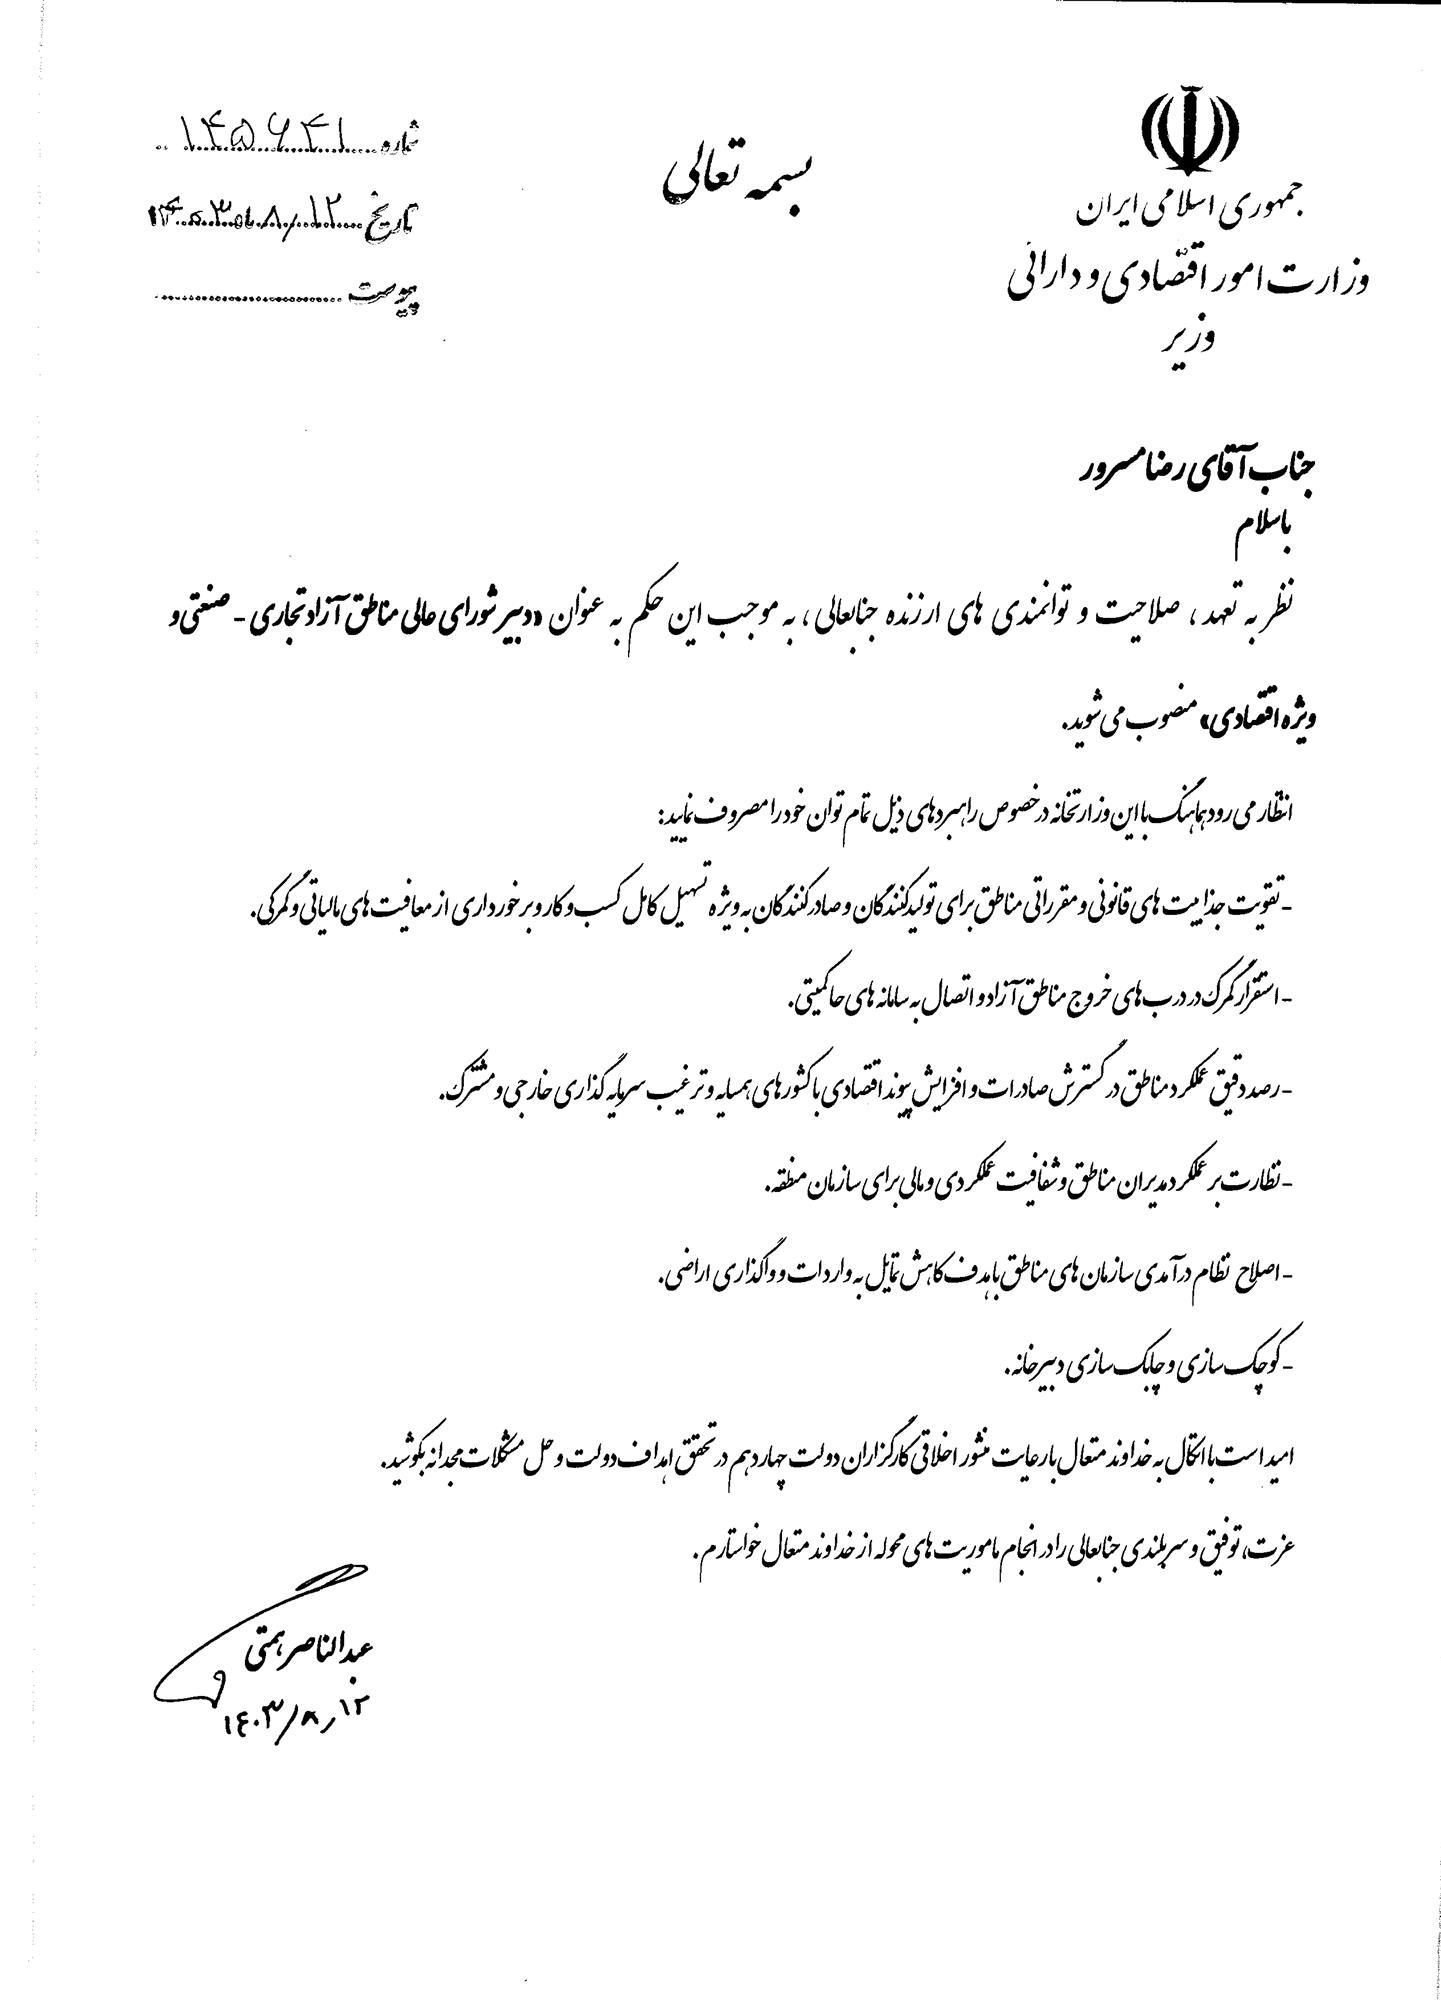 جمهوری اسلامی ایران
وزارت امور اقتصادی و دارائی
وزیر
بسمه تعالی
شماره ۱۴۵۶۴۱
تاریخ ۱۴۰۳/۰۸/۱۲
پیوست
جناب آقای رضا مسرور
باسلام
نظر به تعهد، صلاحیت و توانمندی های ارزنده جنابعالی، به موجب این حکم به عنوان «دبیر شورای عالی مناطق آزاد تجاری - صنعتی و
ویژه اقتصادی» منصوب می شوید.
انتظار می رود هماهنگ با این وزارتخانه در خصوص راهبردهای ذیل تمام توان خود را مصروف نمایید:
- تقویت جذابیت های قانونی و مقرراتی مناطق برای تولیدکنندگان و صادرکنندگان به ویژه تسهیل کامل کسب و کار و برخورداری از معافیت های مالیاتی و گمرکی.
- استقرار گمرک در درب های خروج مناطق آزاد و اتصال به سامانه های حاکمیتی.
- رصد دقیق عملکرد مناطق در گسترش صادرات و افزایش پیوند اقتصادی با کشورهای همسایه و ترغیب سرمایه گذاری خارجی و مشترک.
- نظارت بر عملکرد مدیران مناطق و شفافیت عملکردی و مالی برای سازمان منطقه.
- اصلاح نظام درآمدی سازمان های مناطق با هدف کاهش تمایل به واردات و واگذاری اراضی.
- کوچک سازی و چابک سازی دبیرخانه.
امید است با اتکال به خداوند متعال با رعایت منشور اخلاقی کارگزاران دولت چهاردهم در تحقق اهداف دولت و حل مشکلات مجدانه بکوشید.
عزت، توفیق و سربلندی جنابعالی را در انجام ماموریت های محوله از خداوند متعال خواستارم.
عبدالناصر همتی
۱۴۰۳/۸/۱۲